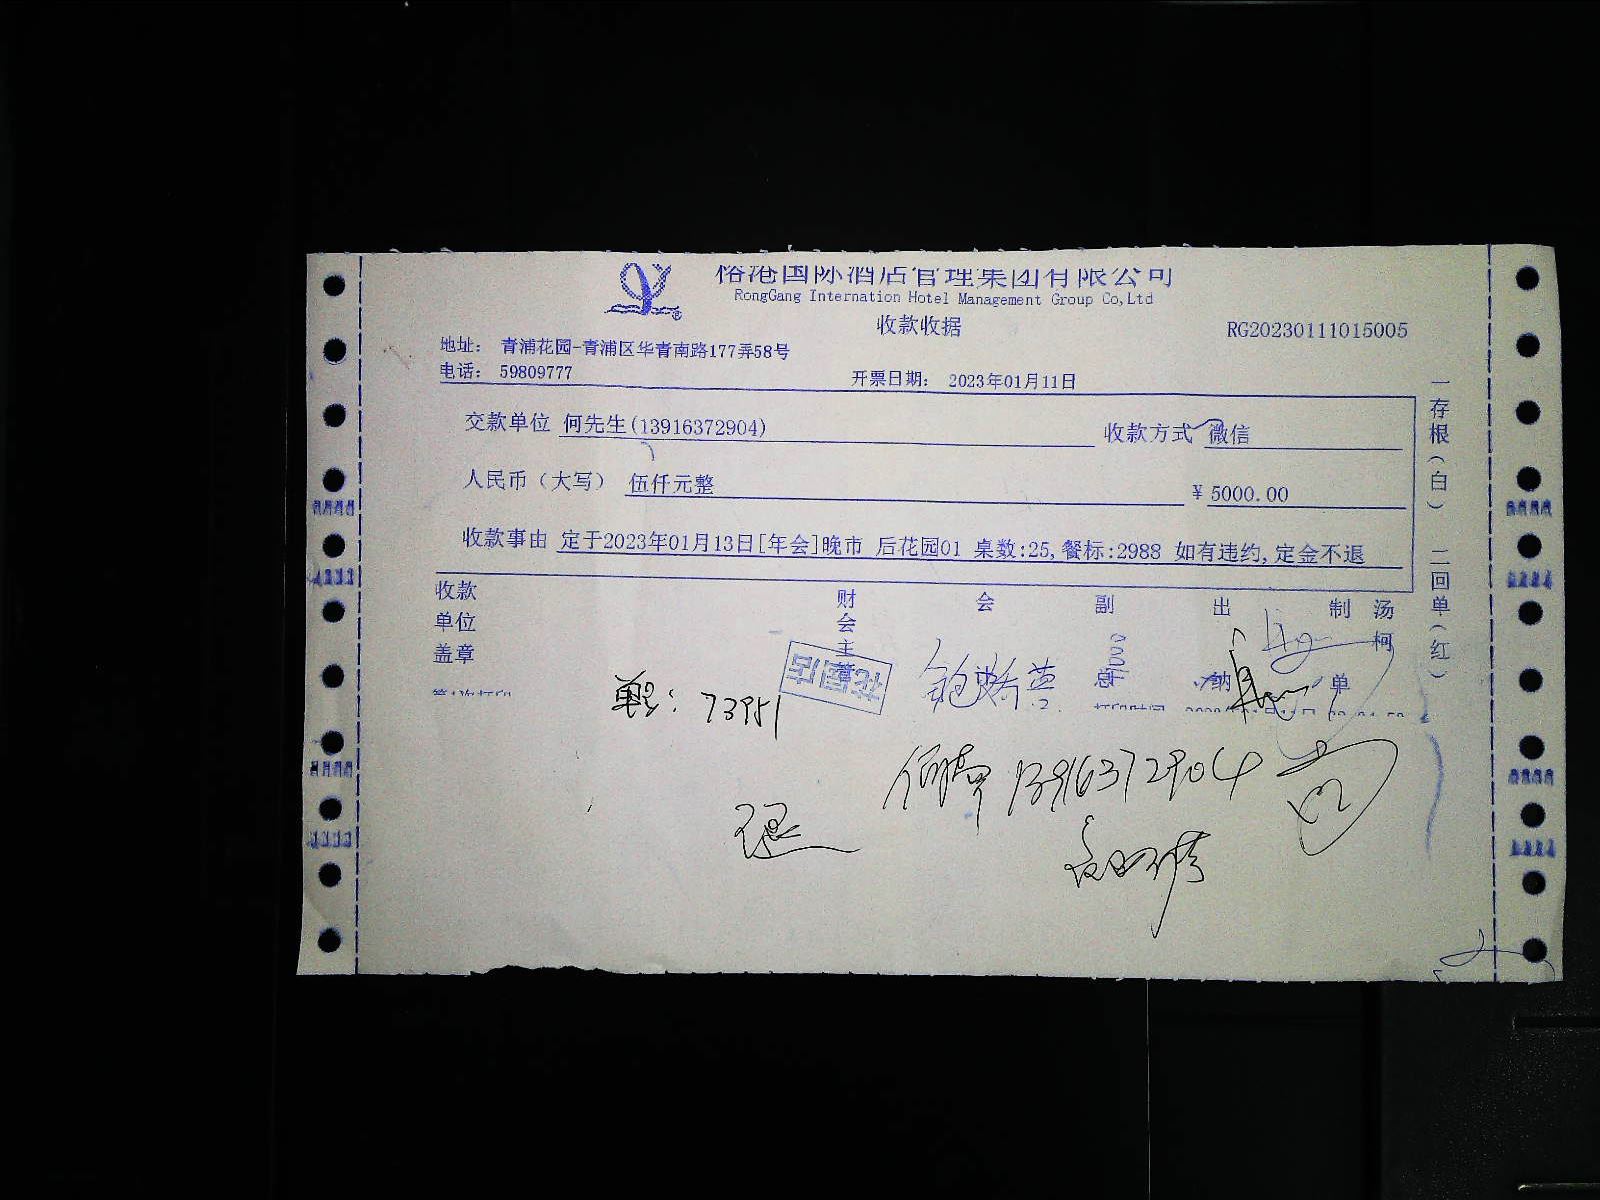 榕港国际酒店管理集团有限公司
RongGang Internation Hotel Management Group Co,Ltd
收款收据
RG20230111015005
地址： 青浦花园-青浦区华青南路177弄58号
电话： 59809777
开票日期： 2023年01月11日
交款单位 何先生(13916372904)
收款方式 微信
人民币（大写） 伍仟元整
¥ 5000.00
收款事由 定于2023年01月13日[年会]晚市 后花园01 桌数:25,餐标:2988 如有违约,定金不退
一存根（白） 二回单（红）
收款单位盖章
财会主管
会
副总
出纳
制单
汤柯
花园店
单号：73951
13916372904
退